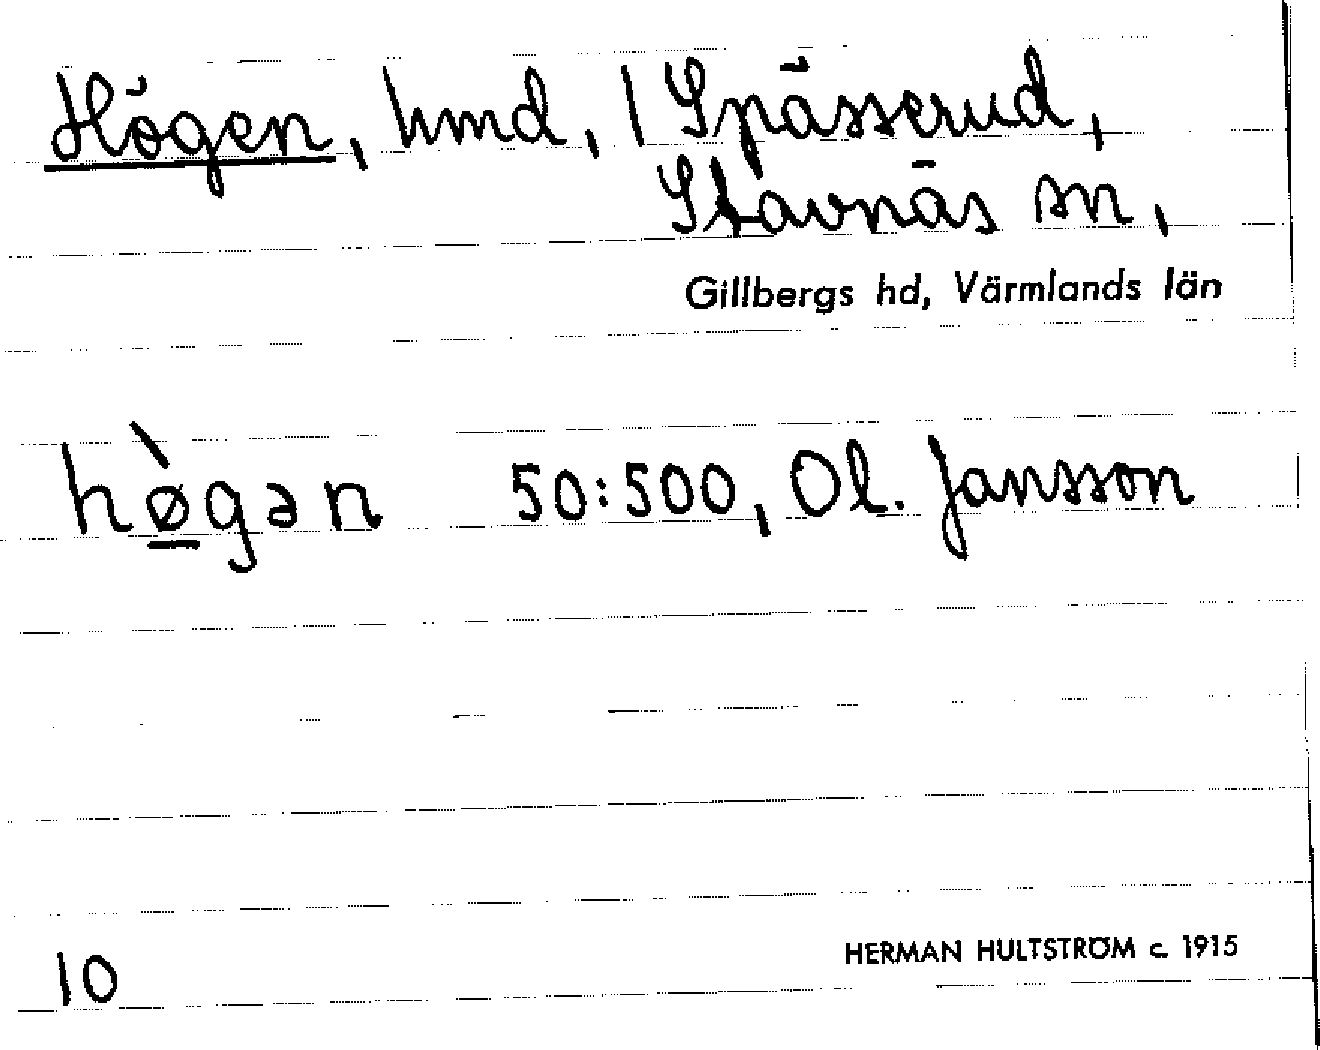 Högen, hmd, / Spässerud,
Stavnäs sn,
Gillbergs hd, Värmlands län
hø̀gən 50:500, Ol. Jansson
10
HERMAN HULTSTRÖM c. 1915